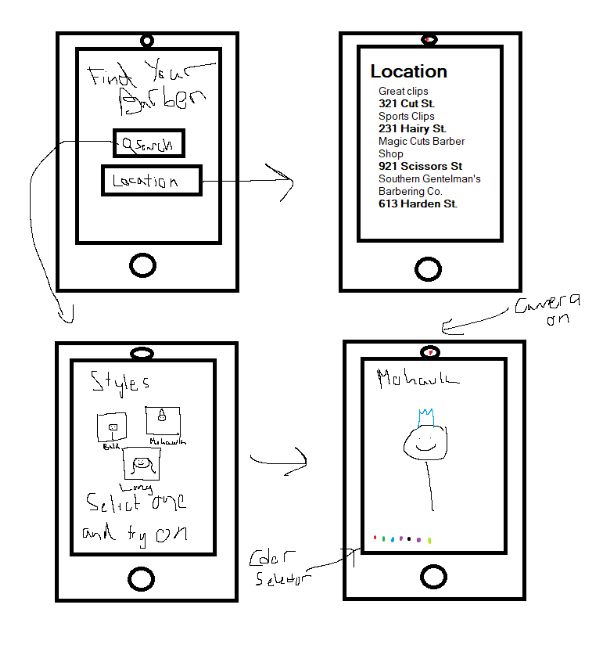 Find Your
Barber
Search
Location
Location
Great clips
321 Cut St.
Sports Clips
231 Hairy St.
Magic Cuts Barber
Shop
921 Scissors St
Southern Gentelman's
Barbering Co.
613 Harden St.
Camera
on
Styles
Mohawk
Long
Select one
and try on
Mohawk
Color
Selector